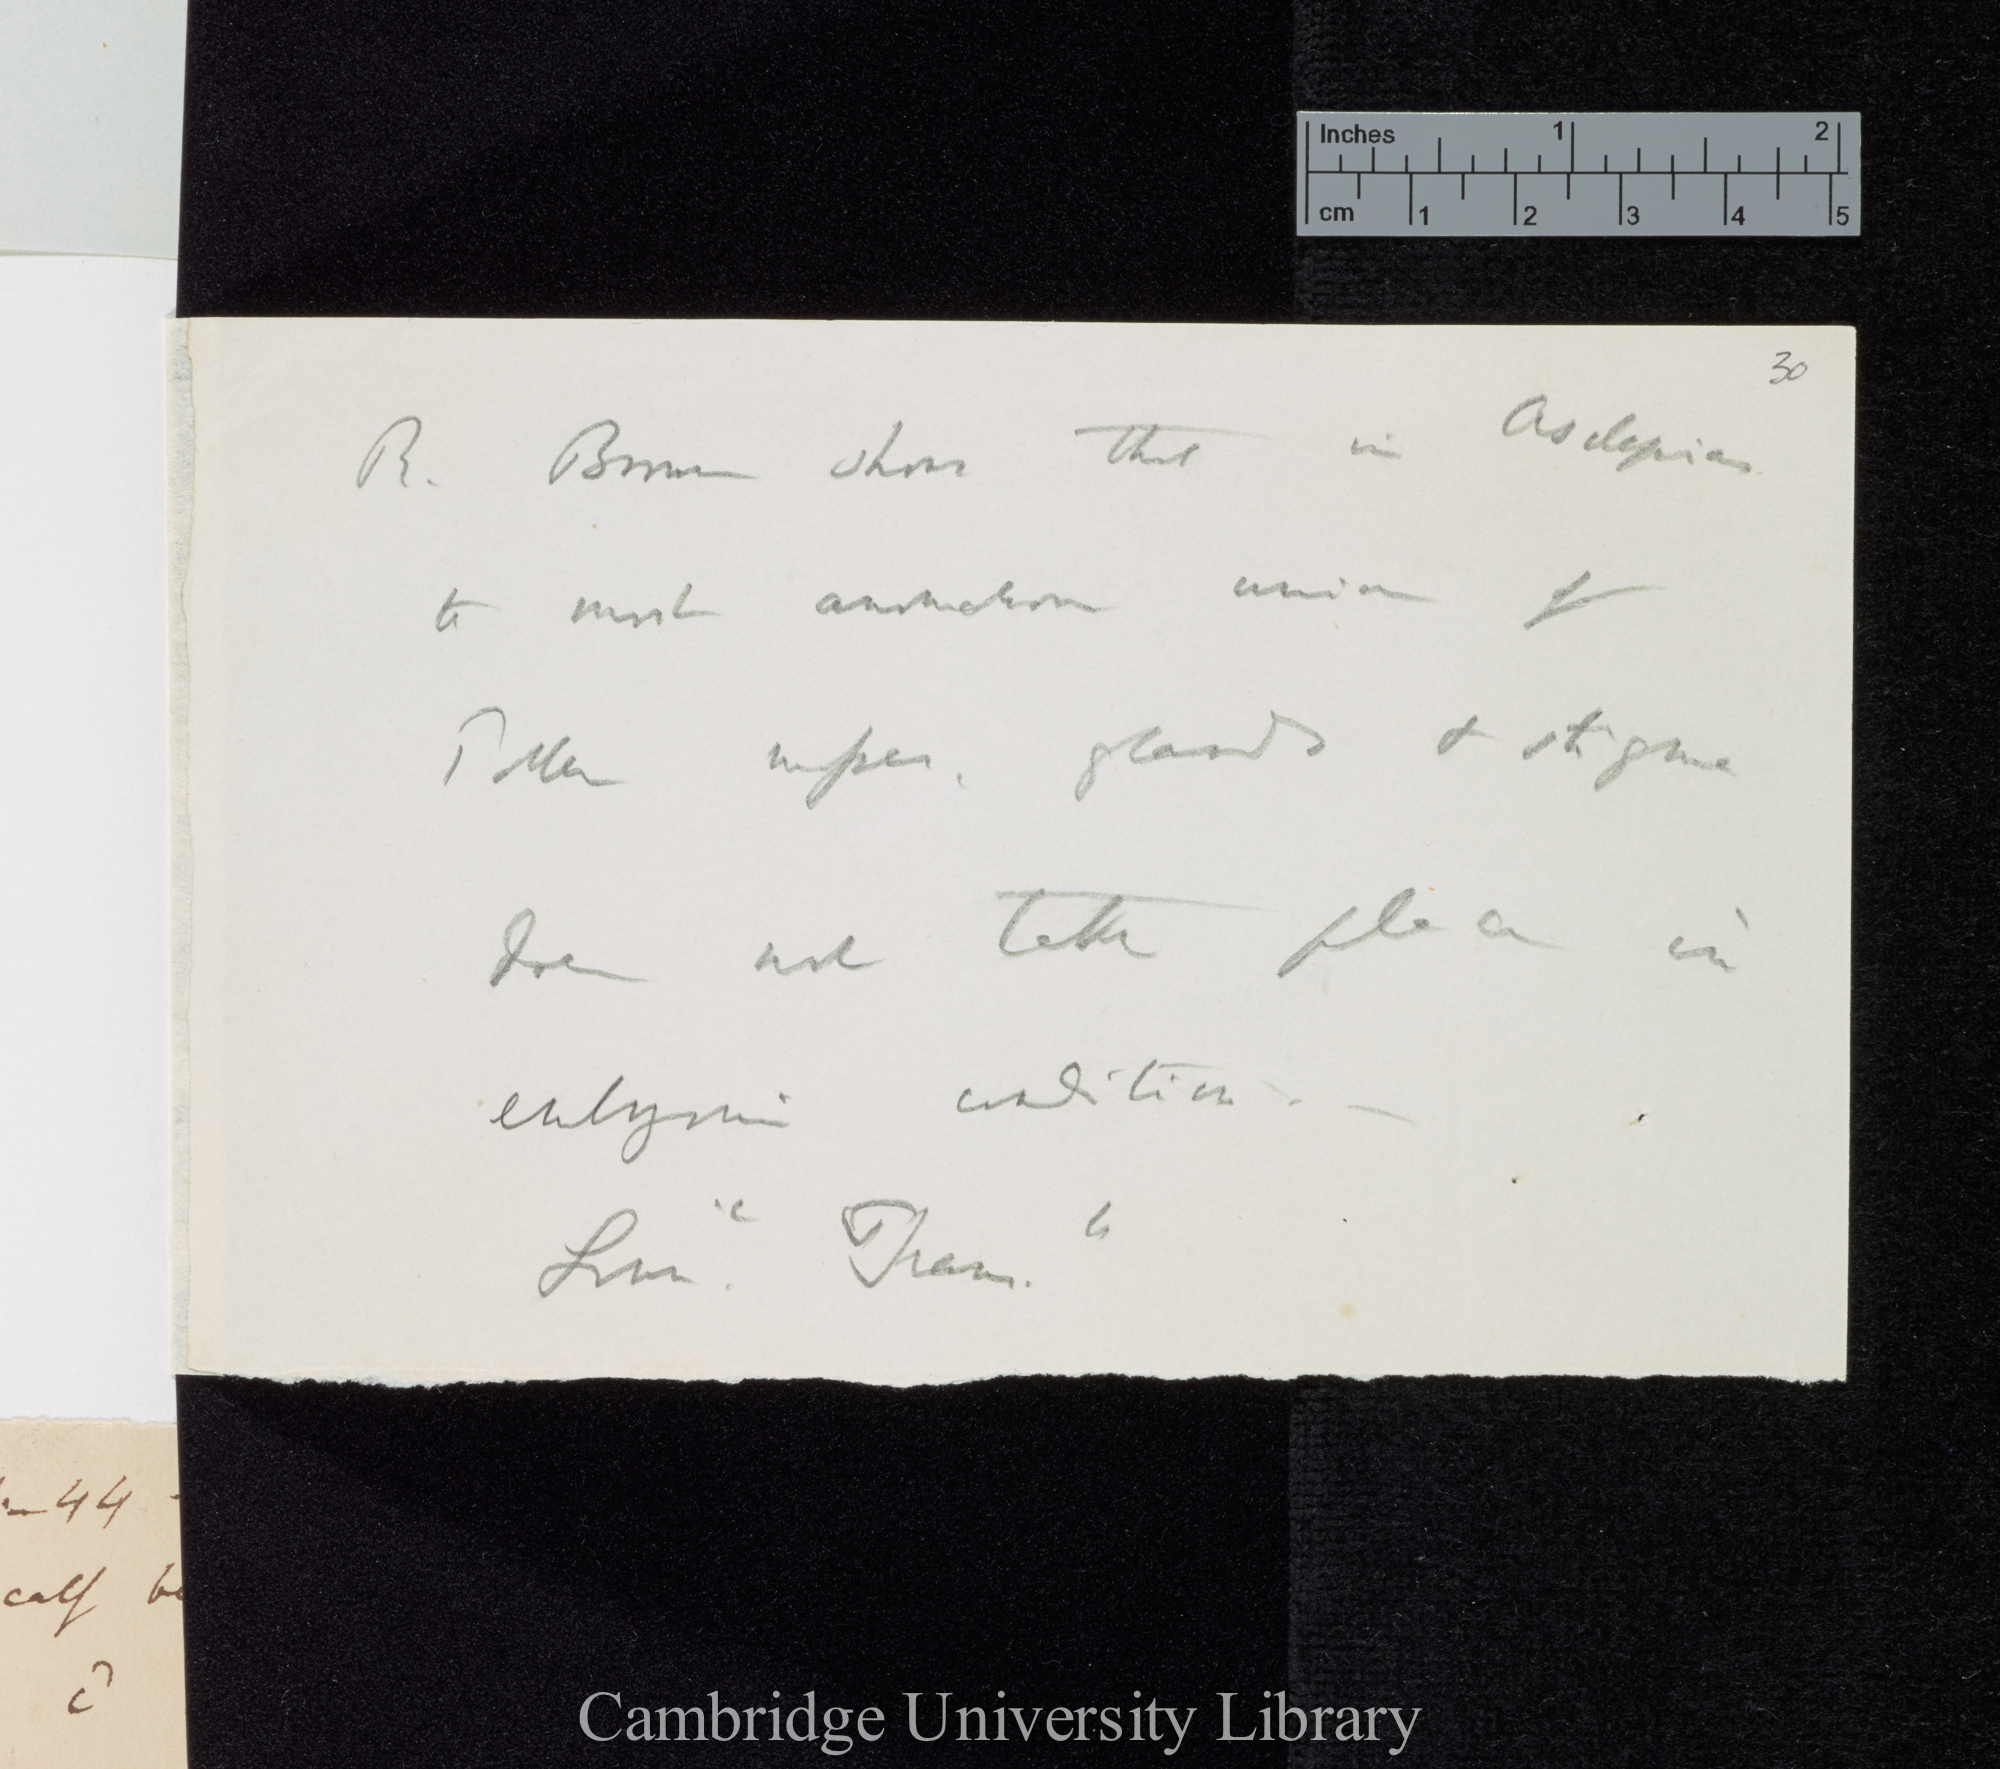 Inches 1 2
cm 1 2 3 4 5
30
R. Brown shows that in Asclepias
to most anomalous union of
Pollen masses, glands & stigma
does not take place in
embryonic condition. —
Linn. " Trans. "
44
calf be
Cambridge University Library